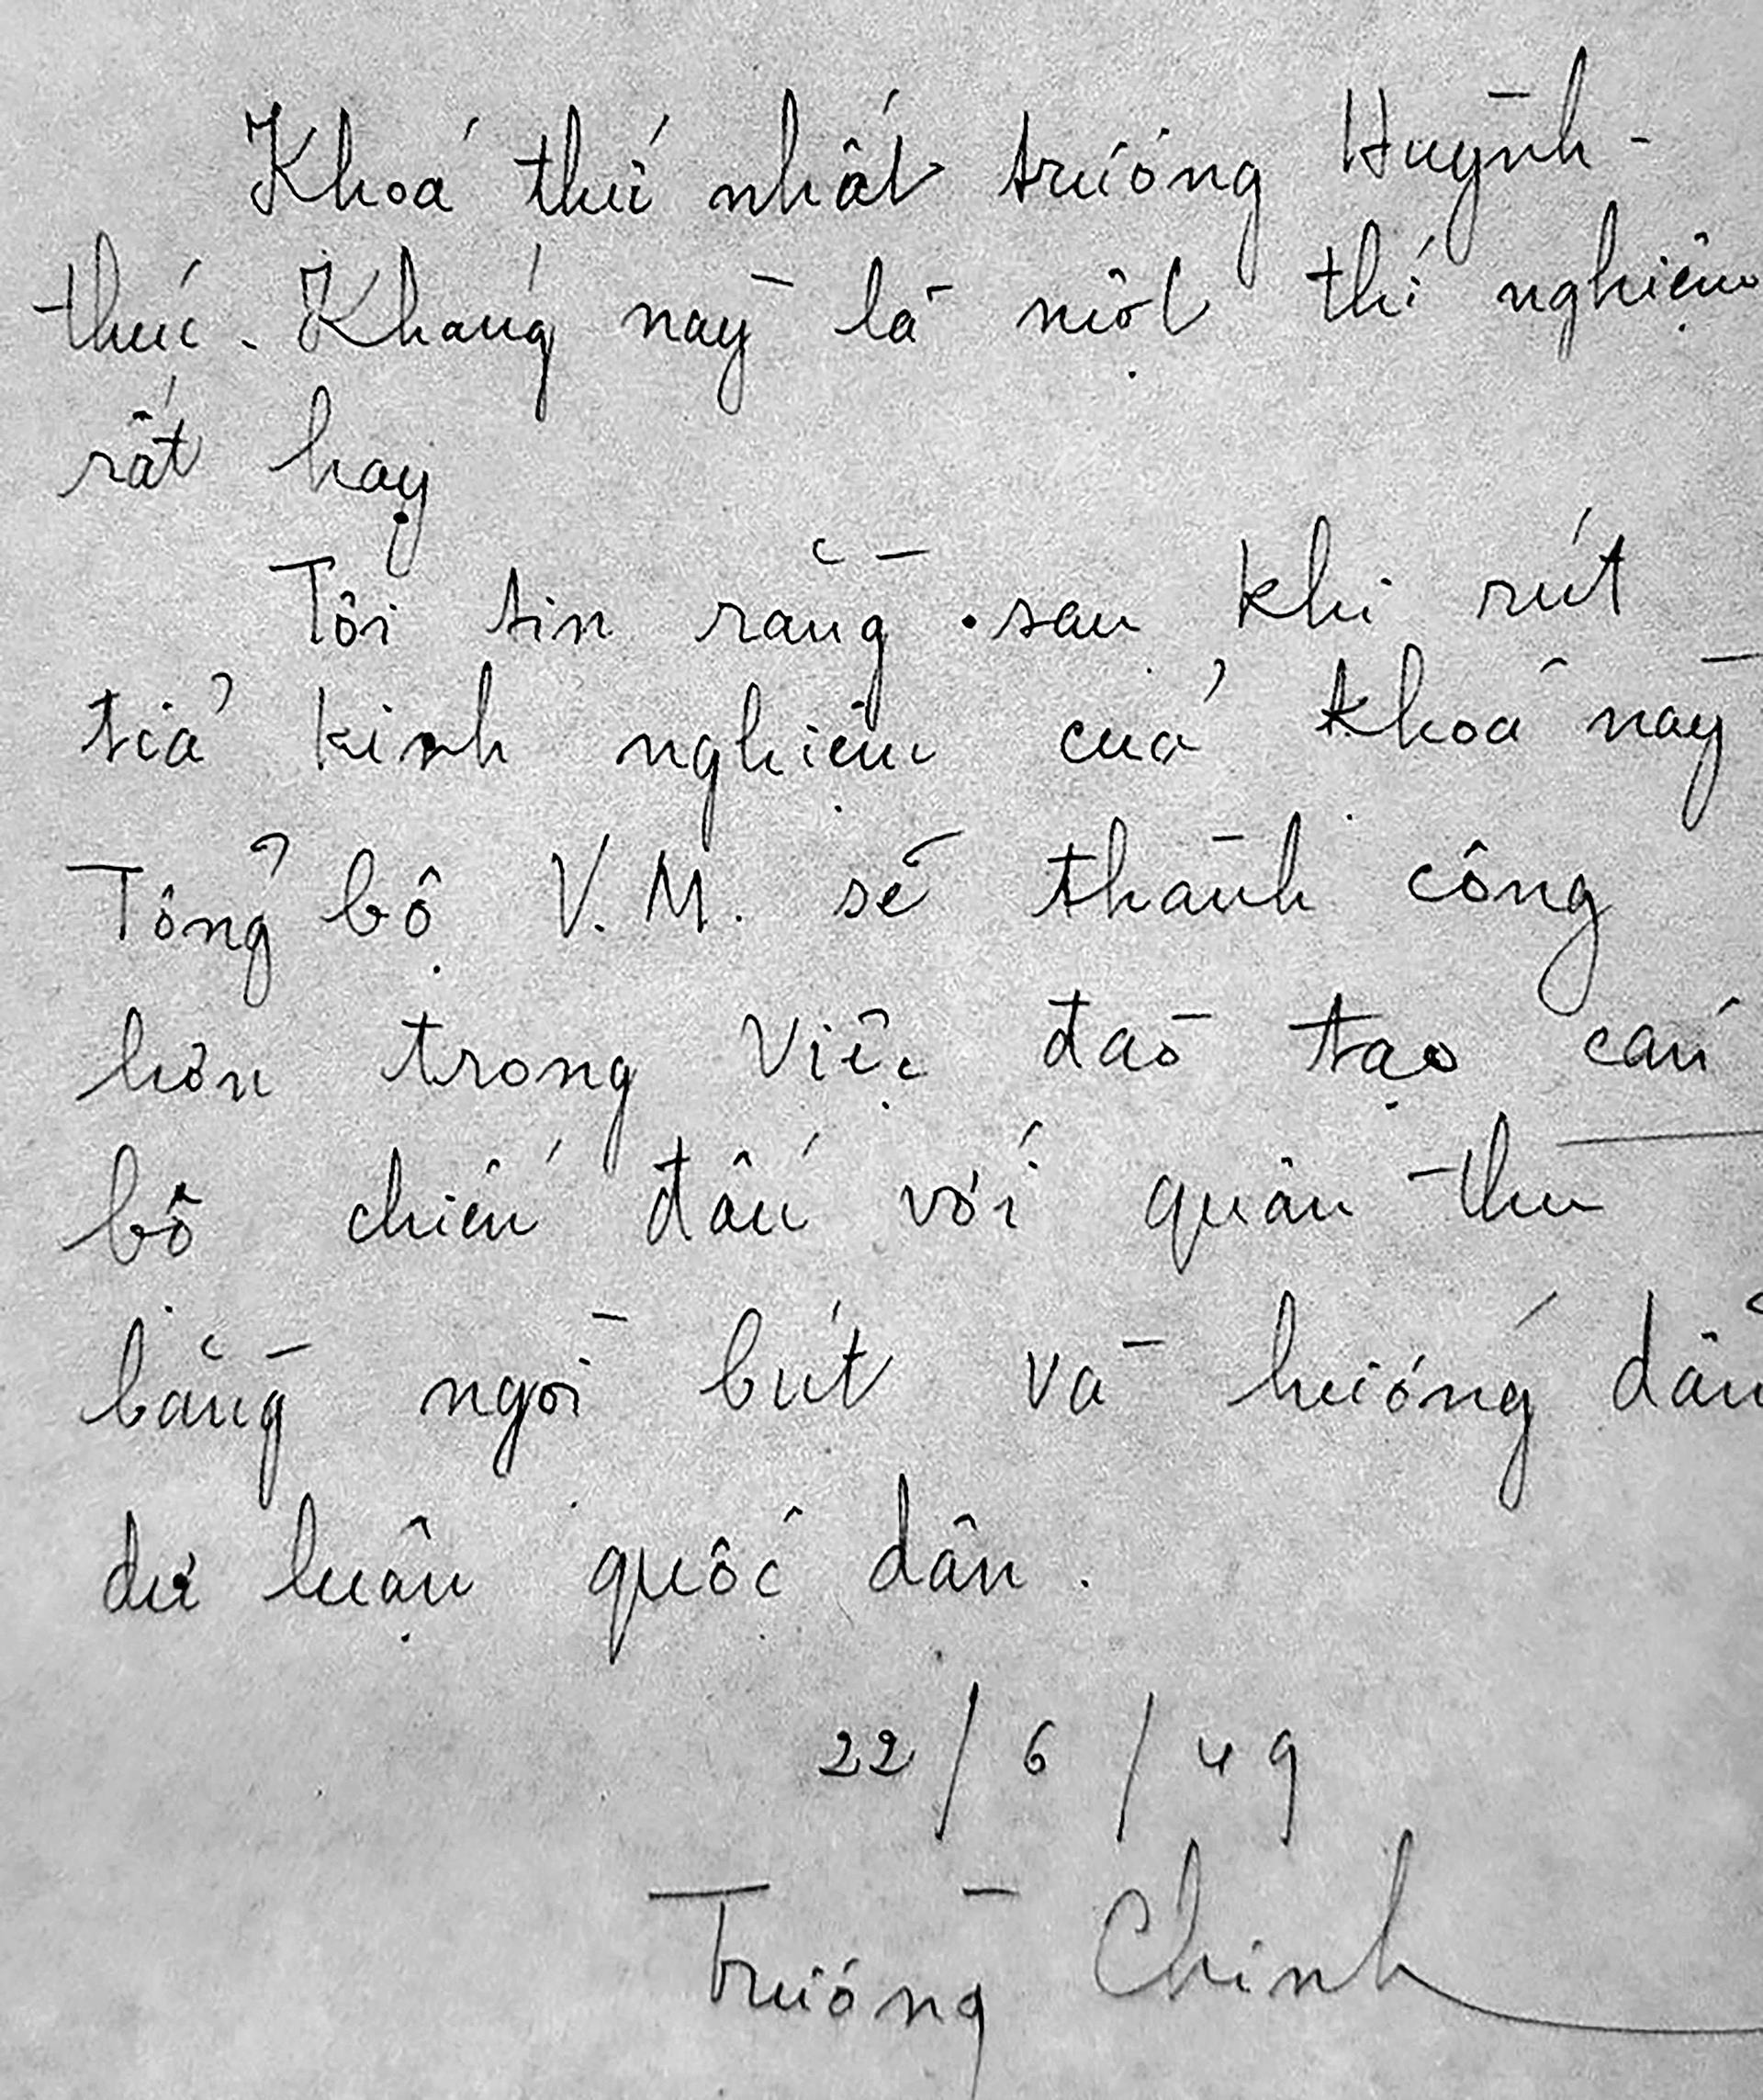 Khoá thứ nhất trường Huỳnh-
thúc-Kháng này là một thí nghiệm
rất hay
Tôi tin rằng sau khi rút
tỉa kinh nghiệm của khoá này
Tổng bộ V.M. sẽ thành công
hơn trong việc đào tạo cán
bộ chiến đấu với quân thù
bằng ngòi bút và hướng dẫn
dư luận quốc dân.
22/6/49
Trường Chinh